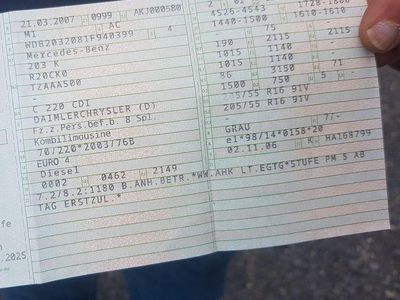 21.03.2007 0999 AKJ000580
M1 AC
WDB2032081F940399 4
Mercedes-Benz
203 K
R20CK0
TZAAA500
-
C 220 CDI
DAIMLERCHRYSLER (D)
Fz.z.Pers.bef.b. 8 Spl.
Kombilimousine
70/220*2003/76B
EURO 4
Diesel
0002 0462 2149
7.2/8.2:1180 B.ANH.BETR.*WW.AHK LT.EGTG*STUFE PM 5 AB
TAG ERSTZUL.*
2 01
4526-4543 1728-1800
1440-1500 1610-1610
75
190 2115 2115
1015 1140 -
1015 1140 -
86 3150 71
1500 750 5 -
/55 R16 91V
205/55 R16 91V
-
GRAU 7/-
e1*98/14*0158*20
02.11.06 K HA168799
.2025